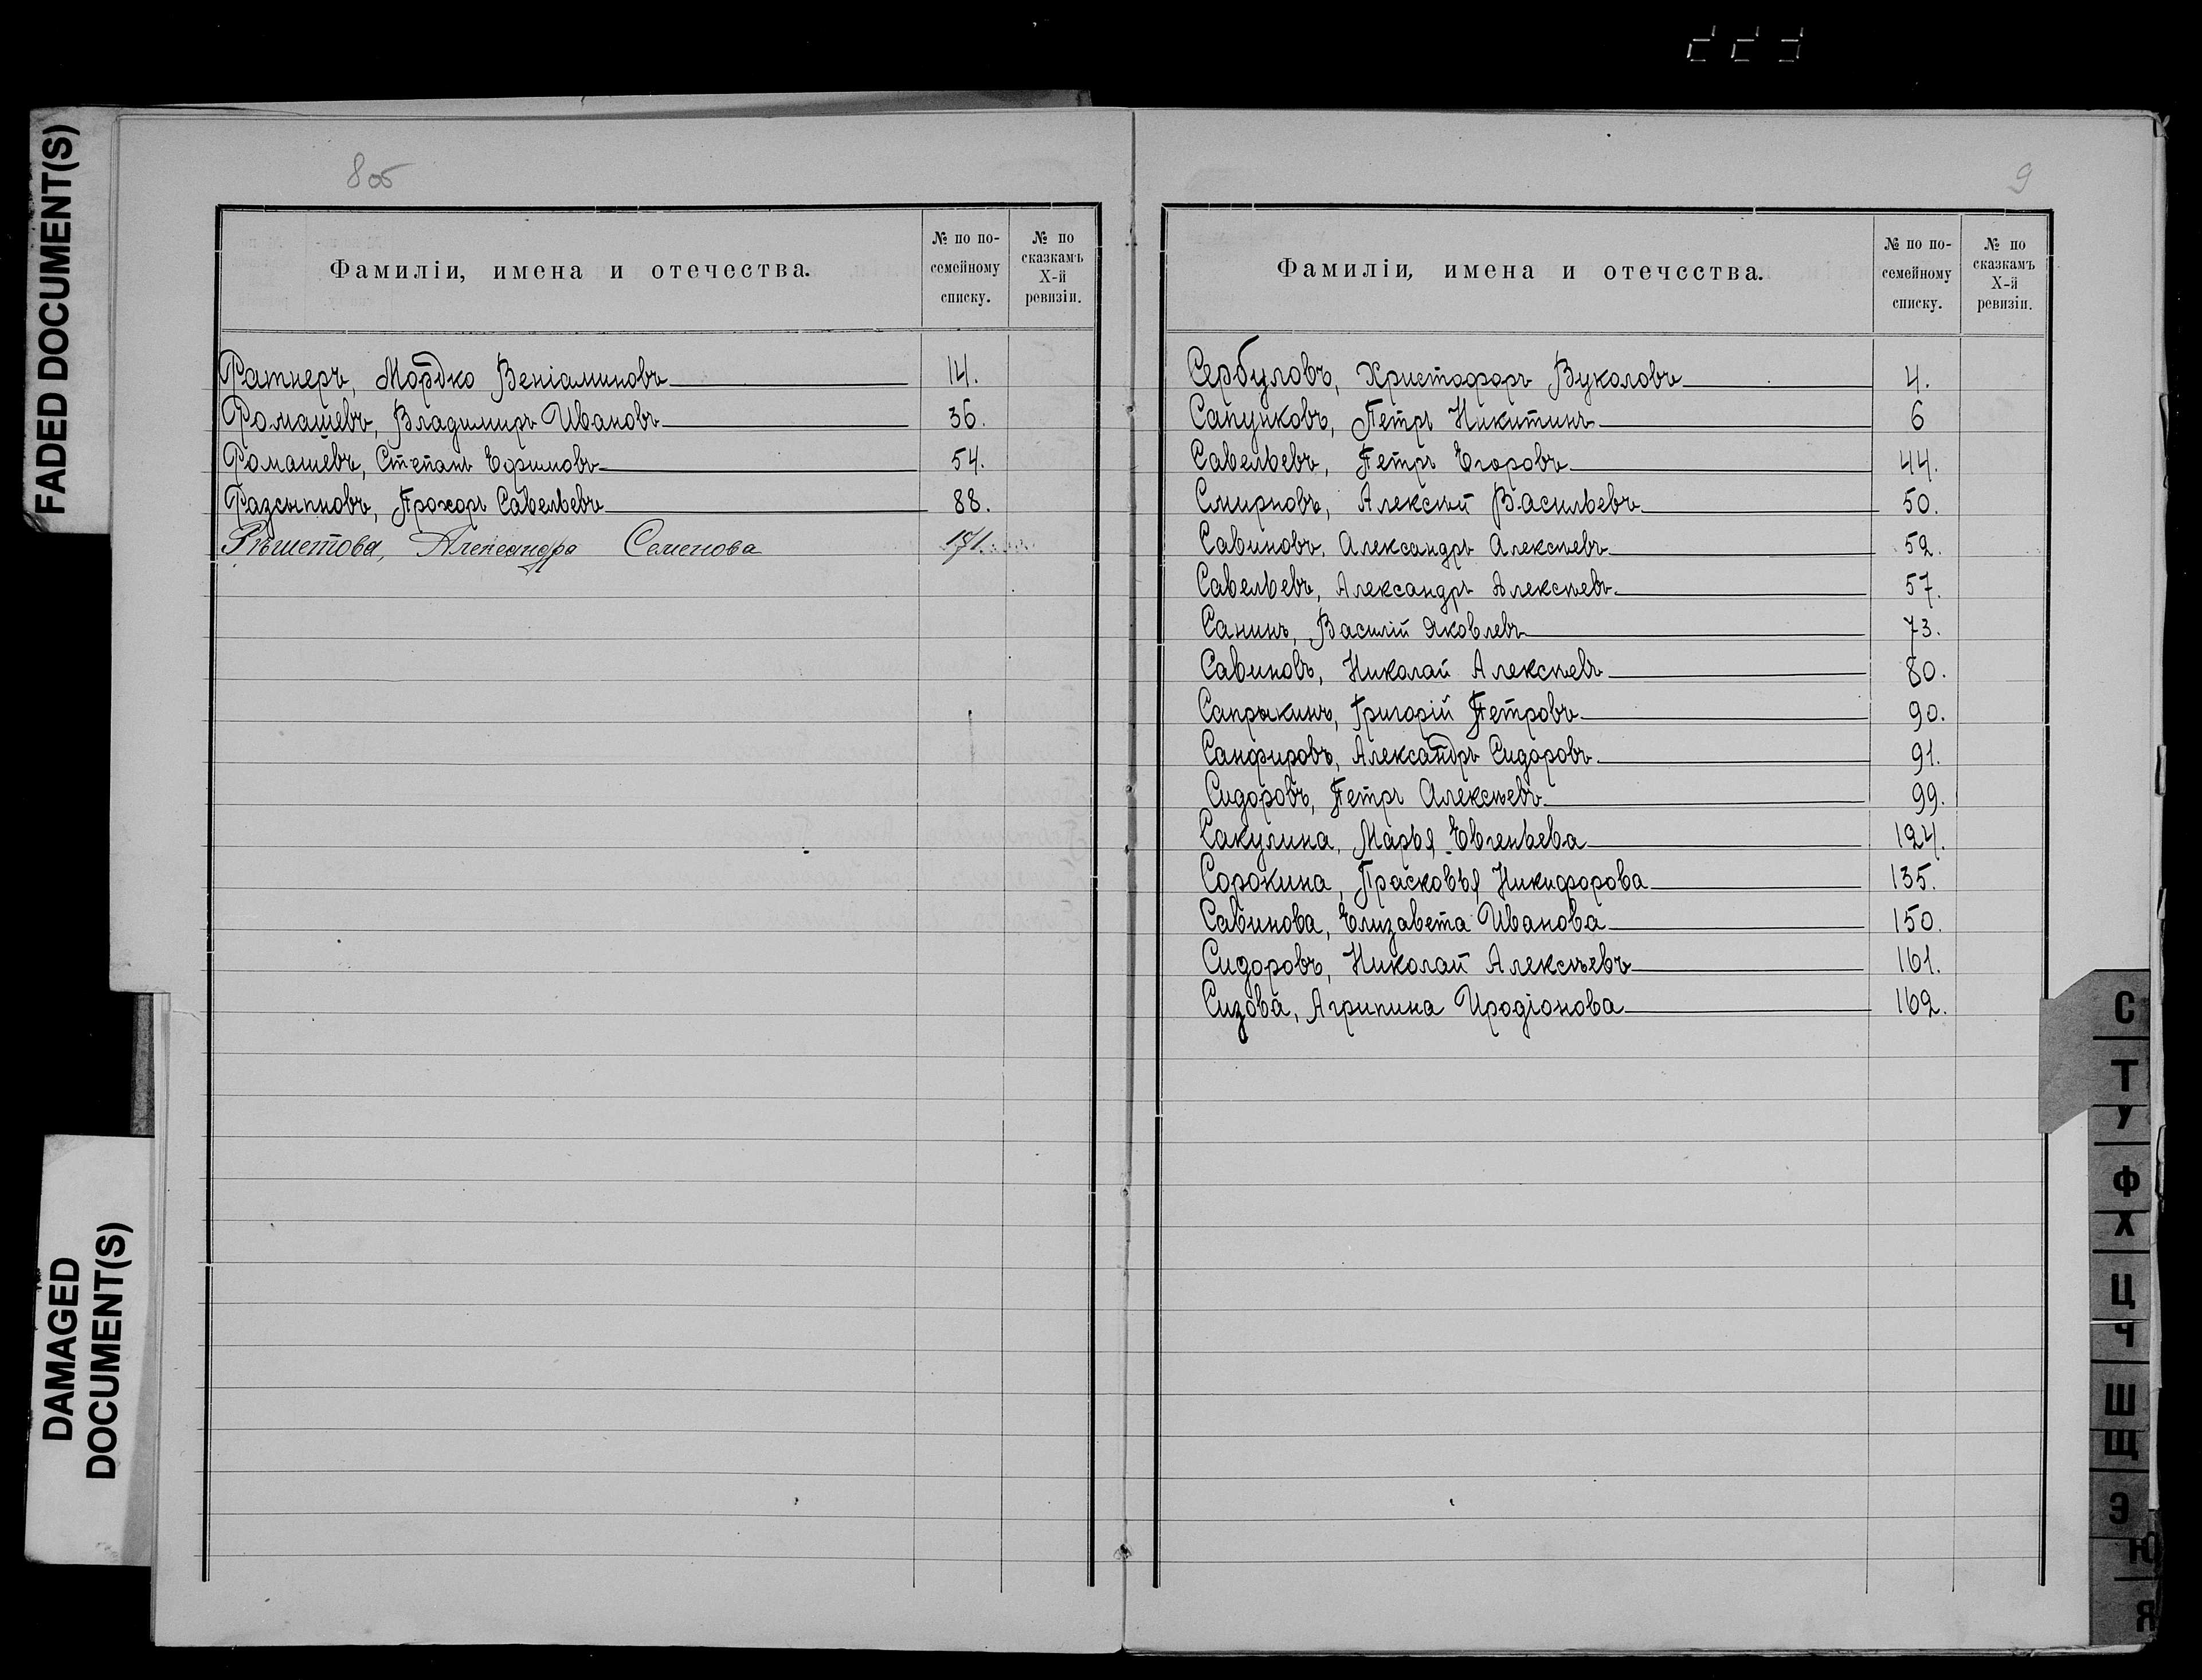 FADED DOCUMENT(S)
DAMAGED
DOCUMENT(S)
8 об
Фамиліи, имена и отечества.
№ по по-
семейному
списку.
№ по
сказкамъ
X-й
ревизіи.
Ратнеръ, Мордко Веніаминовъ 14.
Ромашевъ, Владимиръ Ивановъ 36.
Ромашевъ, Степанъ Ефимовъ 54.
Разсыпновъ, Прохоръ Савельевъ 88.
Рѣшетова, Александра Семенова 171.
9
Фамиліи, имена и отечества.
№ по по-
семейному
списку.
№ по
сказкамъ
X-й
ревизіи.
Сербуловъ, Христофоръ Вуколовъ 4.
Сапунковъ, Петръ Никитинъ 6
Савельевъ, Петръ Егоровъ 44.
Смирновъ, Алексѣй Васильевъ 50.
Савиновъ, Александръ Алексѣевъ 52.
Савельевъ, Александръ Алексѣевъ 57.
Санинъ, Василій Яковлевъ 73.
Савиновъ, Николай Алексѣевъ 80.
Сапрыкинъ, Григорій Петровъ 90.
Санфировъ, Александръ Сидоровъ 91.
Сидоровъ, Петръ Алексѣевъ 99.
Сакулина, Марья Евгеньева 124.
Сорокина, Прасковья Никифорова 135.
Савинова, Елизавета Иванова 150.
Сидоровъ, Николай Алексѣевъ 161.
Сизова, Агрипина Иродіонова 162.
С
Т
У
Ф
Х
Ц
Ч
Ш
Щ
Э
Ю
Я